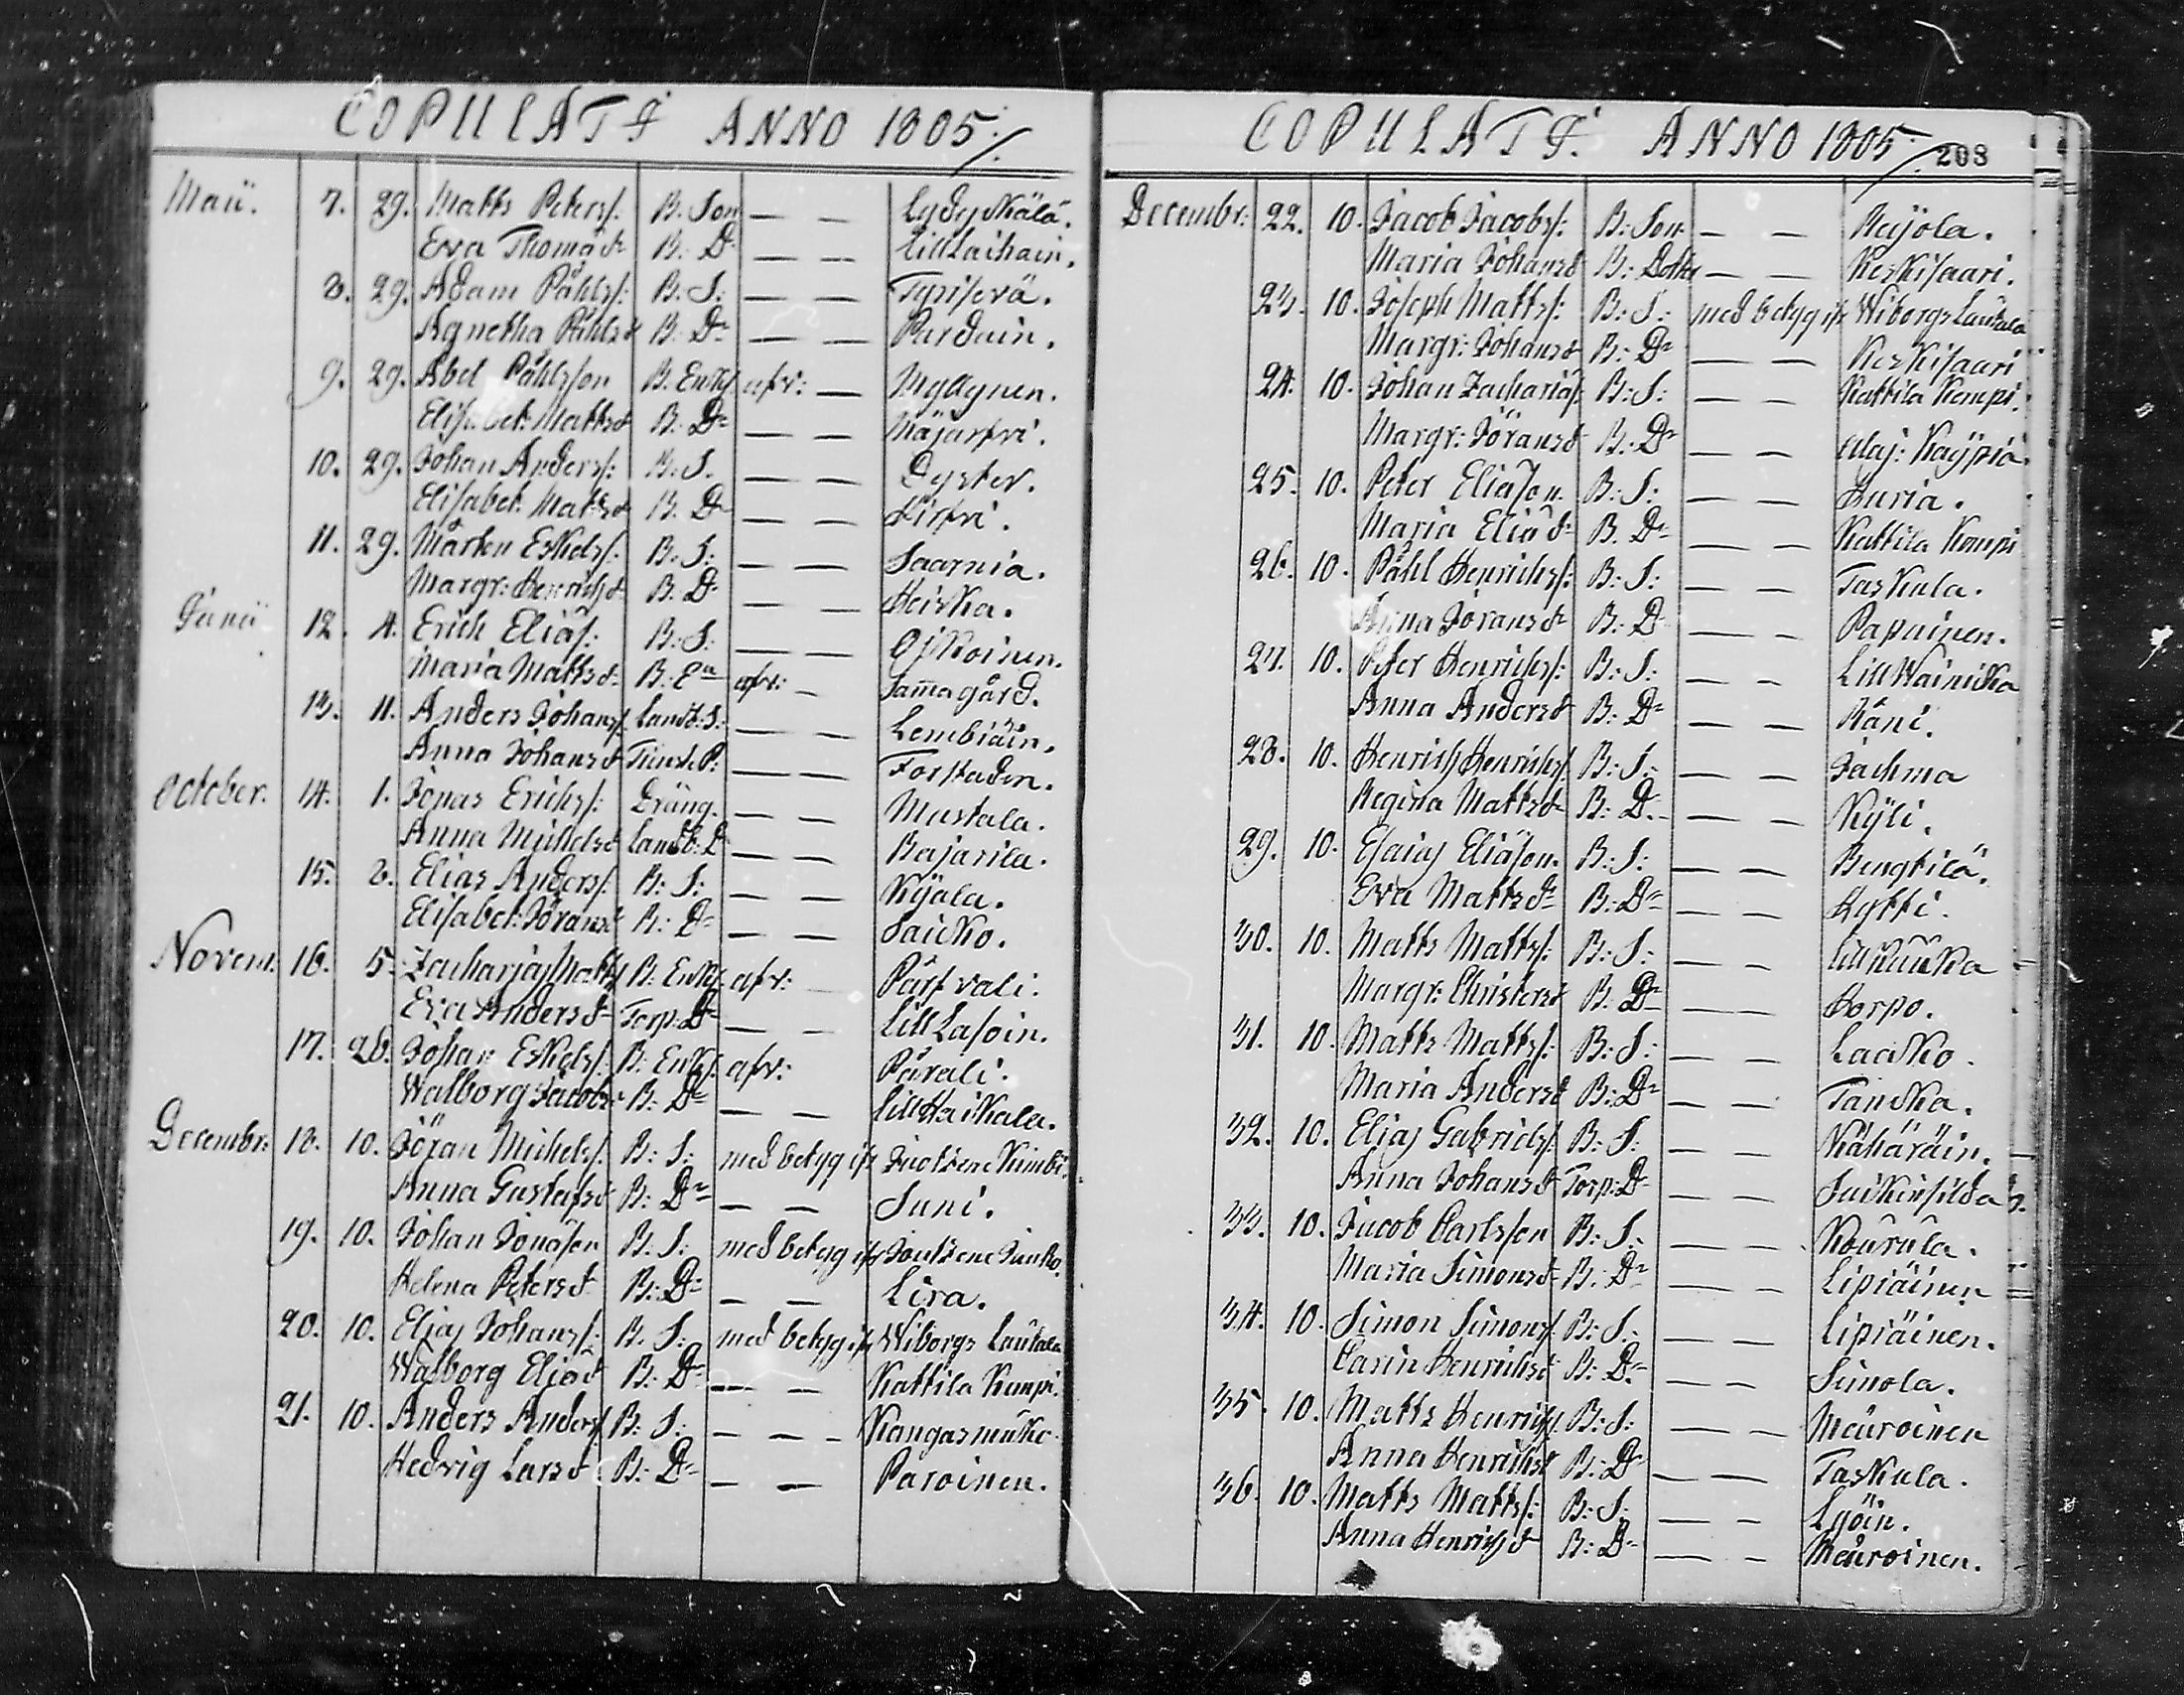 COPULATI ANNO 1805.
Maii. 7. 29. Matts Peterss: B. Son — — Lydykälä.
Eva Thomæd:r B: D:r — — Lill Laihain.
8. 29. Adam Påhlss: B. S: — — Tysiserä.
Agnetha Påhlsd:r B: D:r — — Pardain.
9. 29. Abel Påhlsson B. Enkl. afv: — Myllynen.
Elisabet: Mattsd:r B: D:r — — Mäjärfvi.
10. 29. Johan Anderss: B: S. — — Dyster.
Elisabet: Mattsd:r B. D:r — — Hirfvi.
11. 29. Mårten Eskelss: B: S: — — Saarnia.
Margr: Henrichsd:r B. D:r — — Heicka.
Junii 12. 4. Erich Eliæs: B: S: — — Ojkoinen.
Maria Mattsd:r B: E:a afv: — Samma gård.
13. 11. Anders Johanss: Landb: S: — — Lembiäin.
Anna Johansd:r Tienst. P: — — Forstaden.
October. 14. 1. Jonas Erichss: Dräng. — — Mustala.
Anna Michelsd:r Landb: D — — Bajarila.
15. 8. Elias Anderss: B: S: — — Kyjala.
Elisabet: Göransd:r B: D:r — — Saicko.
Novem. 16. 5. Zacharias Mattss B: Enkl. afv: — Pärfvali.
Eva Andersd:r Torp: D:r — — Lill Lasoin.
17. 26. Johan Eskelss: B: Enkl. afv: Pärvali.
Walborg Jacobsd:r B: D:r — — Lill Haikala.
Decembr: 18. 10. Jöran Michelss: B: S: med betyg ifr Kimbi.
Anna Gustafsd:r B: D:r — — Suni.
19. 10. Johan Jonæson B. S: med betyg ifr Joutseno
Helena Petersd:r B: D:r — — Lira.
20. 10. Elias Johanss: B. S: med betyg ifr Wiborgs Lautala
Walborg Eliæd:r B: D:r — — Kattila Kempi.
21. 10. Anders Anderss: B: S: — — — Kangasmäki
Hedvig Larsd:r B: D:r — — Paroinen.
COPULATI. ANNO 1805. 208
Decembr: 22. 10. Jacob Jacobss: B: Son — — Reijola.
Maria Johansd:r B: Dotter — — Keskisaari.
23. 10. Joseph Mattss: B: S: med betyg ifr Wiborgs Lautala
Margr: Johansd:r B: D:r — — Keskisaari
24. 10. Johan Zachariæs: B: S: — — Kattila Kempi.
Margr: Göransd:r B: D:r — — Alaj: Käypiä.
25. 10. Peter Eliæson B: S: — — Huria.
Maria Eliæd:r B. D:r — — Kattila Kempi
26. 10. Påhl Henrichss: B: S: — — Taskula.
Anna Göransd:r B: D:r — — Papainen.
27. 10. Peter Henrichss: B: S: — — Lill Wainicka
Anna Andersd:r B: D:r — — Räni.
28. 10. Henrich Henrichss: B: S: — — Jachma
Regina Mattsd:r B: D:r — — Kyli.
29. 10. Esaias Eliæson. B: S: — — Bengtilä.
Eva Mattsd:r B: D:r — — Hytti.
30. 10. Matts Mattss: B: S: — —
Margr: Christersd:r B: D:r — — Horpo.
31. 10. Matts Mattss: B: S: — — Laacko.
Maria Andersd:r B: D:r — — Tancka.
32. 10. Elias Gabrielss: B: S: — — Kähäräin.
Anna Johansd:r Torp: D:r — — Suikinsilda
33. 10. Jacob Carlsson B: S: — — Kourula.
Maria Simonsd:r B: D:r — — Lipiäinen
34. 10. Simon Simonss: B: S: — — Lipiäinen.
Carin Henrichsd:r B: D:r — — Simola.
35. 10. Matts Henrichss: B: S: — — Meuroinen
Anna Henrichsd:r B: D:r — — Taskula.
36. 10. Matts Mattss: B: S: — — Lyöin.
Anna Henrichsd:r B: D:r — — Meuroinen.